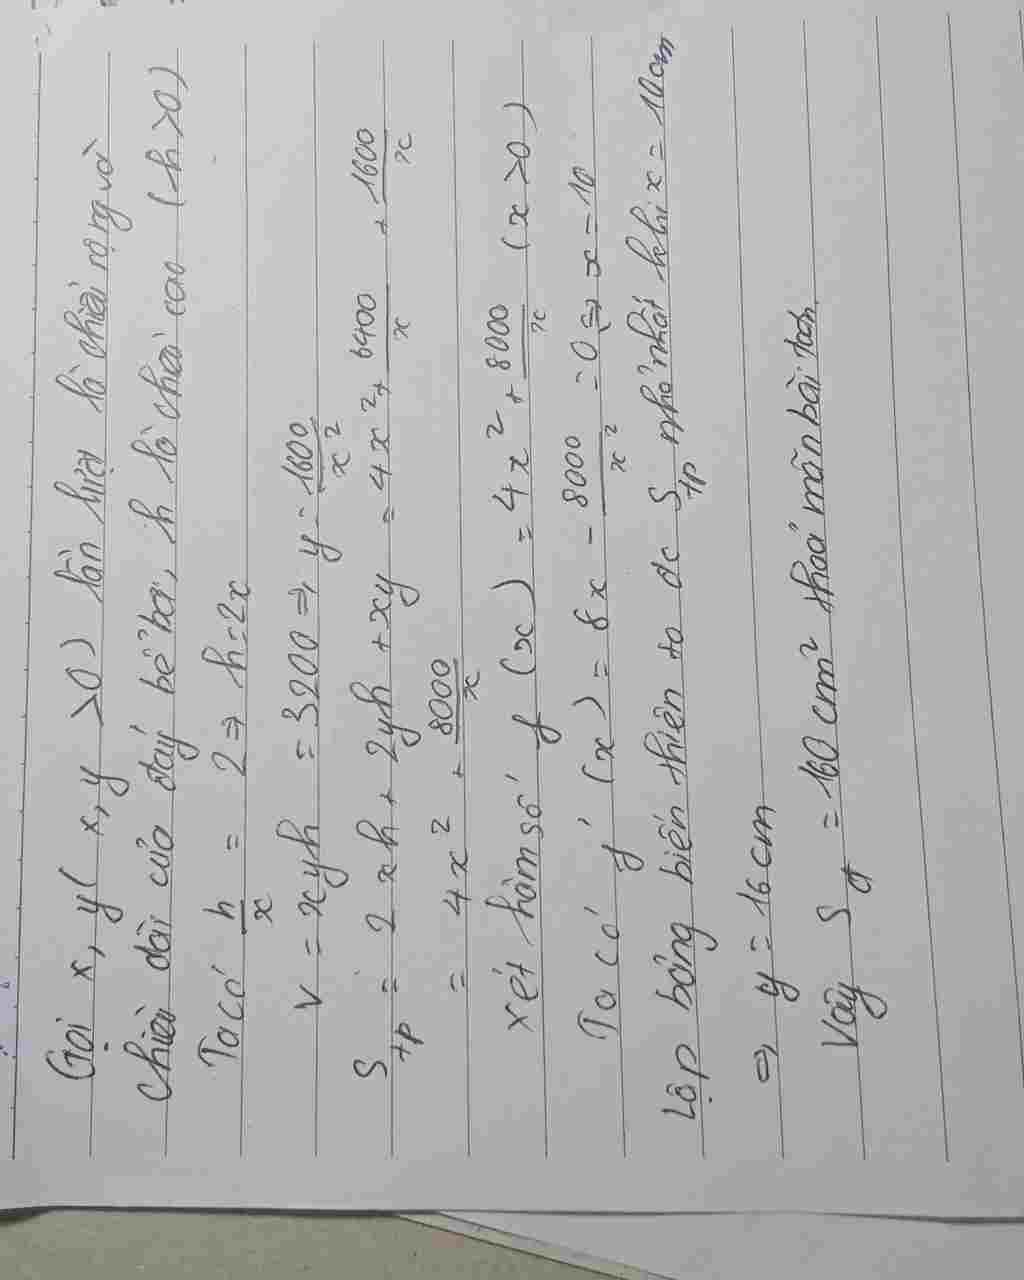 Gọi x, y ( x, y > 0 ) lần lượt là chiều rộng và
chiều dài của đáy bể ba, h là chiều cao ( h > 0 )
Ta có h/x = 2 => h = 2x
V = xyh = 3200 => y = 1600/x²
S tp = 2xh + 2yh + xy = 4x² + 6400/x + 1600/x
= 4x² + 8000/x
xét hàm số f (x) = 4x² + 8000/x ( x > 0 )
Ta có f' (x) = 8x - 8000/x² = 0 <=> x = 10
Lập bảng biến thiên ta đc S tp nhỏ nhất khi x = 10cm
=> y = 16 cm
Vậy S đ = 160 cm² thoả mãn bài toán